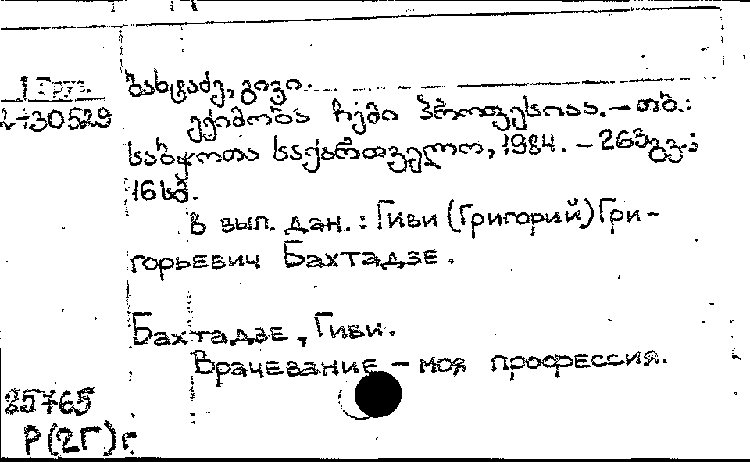 1 Груз.
2-130529
ბახტაძე, გივი.
ექიმობა ჩემი პროფესიაა. – თბ.:
საბჭოთა საქართველო, 1984. – 263გვ.;
16სმ.
В вып. дан.: Гиви (Григорий) Гри-
горьевич Бахтадзе.
Бахтадзе, Гиви.
Врачевание – моя профессия.
85765
Р(2Г)г